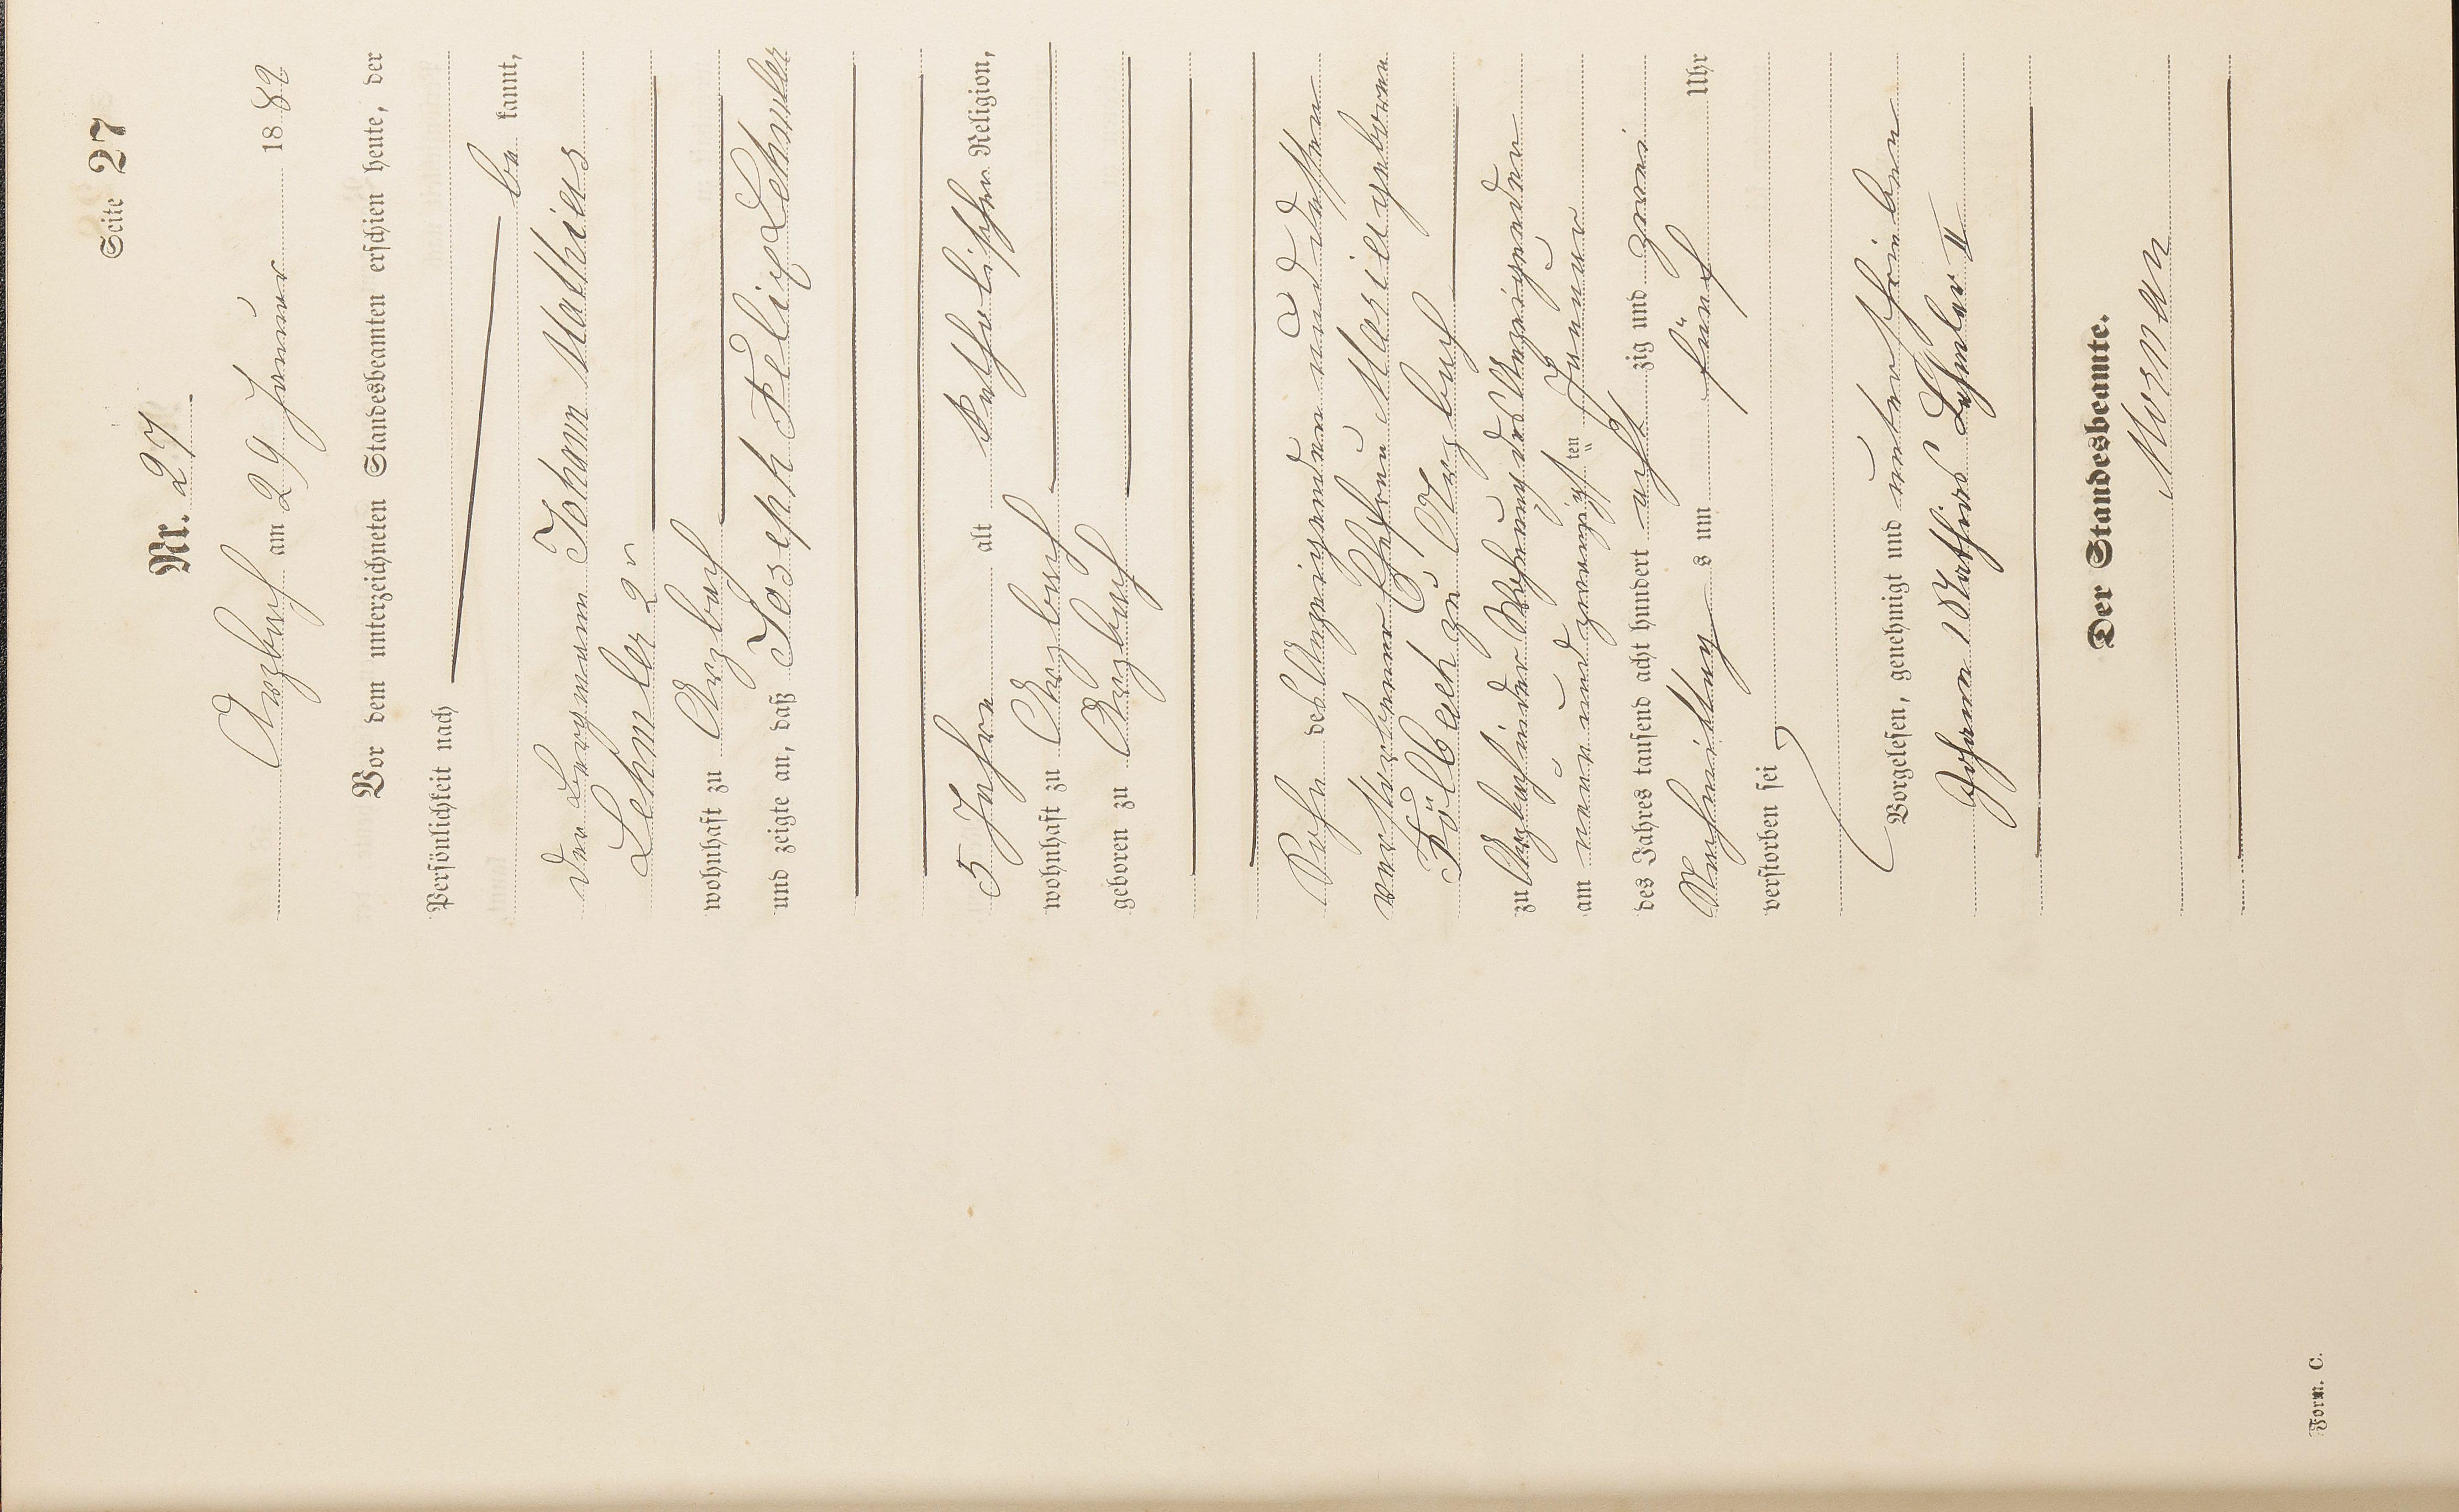 Seite 27
Nr. 27
Arzbach am 29 Januar 1882
Vor dem unterzeichneten Standesbeamten erschien heute, der
Persönlichkeit nach
be kannt,
der Bergmann Johann Mathias
Lehmler 2r
wohnhaft zu Arzbach
und zeigte an, daß Joseph Felix Lehmler
5 Jahre alt katholischer Religion,
wohnhaft zu Arzbach
geboren zu Arzbach
Sohn des Anzeigenden und dessen
verstorbener Ehefrau Maria geborene
Fölbach zu Arzbach
zu Arzbach in der Wohnung des Anzeigenden
am neun und zwanzigsten Januar
des Jahres tausend acht hundert acht zig und zwei
Nachmittag s um fünf Uhr
verstorben sei
Vorgelesen, genehmigt und unterschrieben
Johann Mathias Lehmler II
Der Standesbeamte.
Form. C.